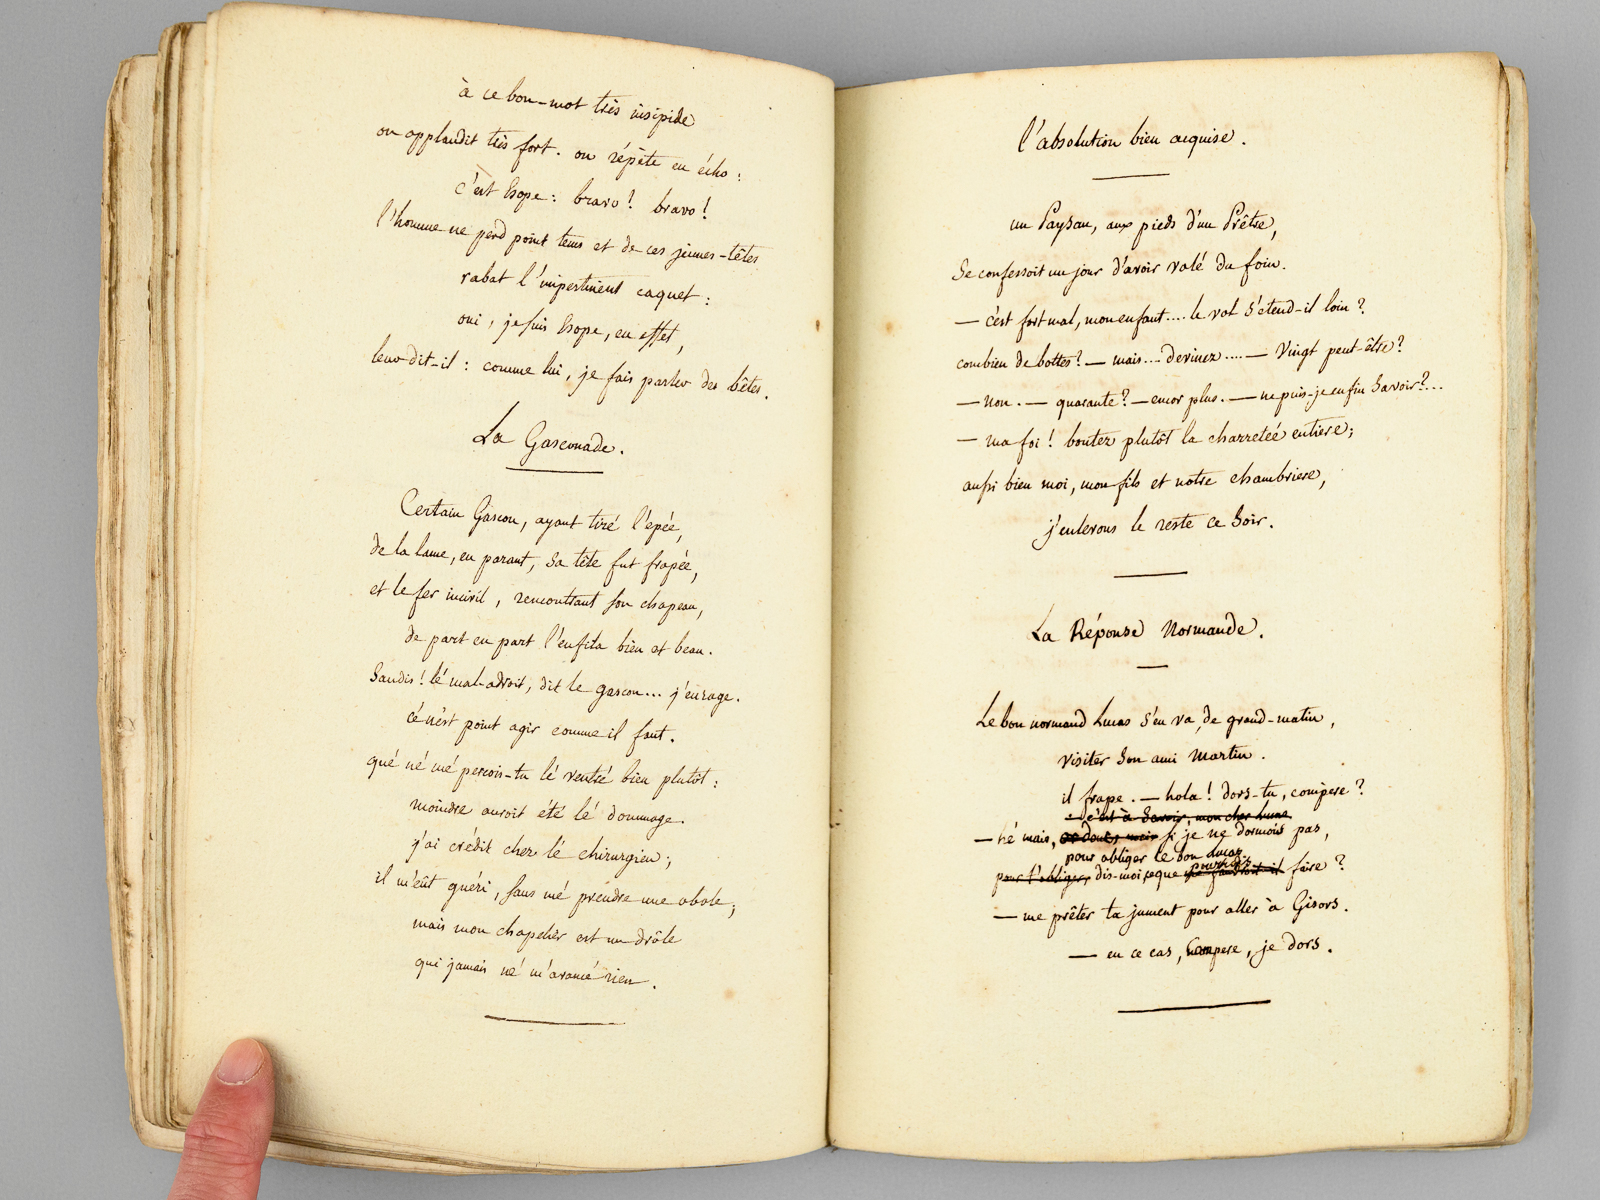 à ce bon-mot très insipide
on applaudit très fort. on répète en écho :
c'est Esope : bravo ! bravo !
l'homme ne perd point tems et de ces jeunes-têtes
rabat l'impertinent caquet :
oui, je suis Esope, en effet,
leur dit-il : comme lui, je fais parler des bêtes.
La Gasconade.
Certain Gascon, ayant tiré l'epée,
de la lame, en parant, sa tête fut frapée,
et le fer incivil, rencontrant son chapeau,
de part en part l'enfila bien et beau.
Sandis ! lé mal-adroit, dit le gascon... j'enrage.
cé n'est point agir comme il faut.
qué né mé perçois-tu lé ventré bien plutôt :
moindre auroit été lé dommage.
j'ai crédit chez lé chirurgien ;
il m'eût guéri, sans mé prendre une obole ;
mais mon chapelier est un drôle
qui jamais né m'avancé rien.
l'absolution bien acquise.
un Paysan, aux pieds d'un Prêtre,
Se confessoit un jour d'avoir volé du foin.
— c'est fort mal, mon enfant.... le vol s'étend-il loin ?
combien de bottes ? — mais.... devinez.... — Vingt peut-être ?
— non. — quarante ? — encor plus. — ne puis-je enfin savoir ?...
— ma foi ! boutez plutôt la charretéé entiere ;
aussi bien moi, mon fils et notre chambriere,
j'enlevons le reste ce soir.
La Réponse Normande.
Le bon normand Lucas s'en va, de grand-matin,
visiter son ami Martin.
il frape. — hola ! dors-tu, compere ?
— c'est à savoir, mon cher Lucas
— hé mais, si je ne dormois pas,
pour obliger le bon Lucas
pourrois
pour t'obliger, dis-moi, que me faudroit-il faire ?
— me prêter ta jument pour aller à Gisors.
— en ce cas, compere, je dors.